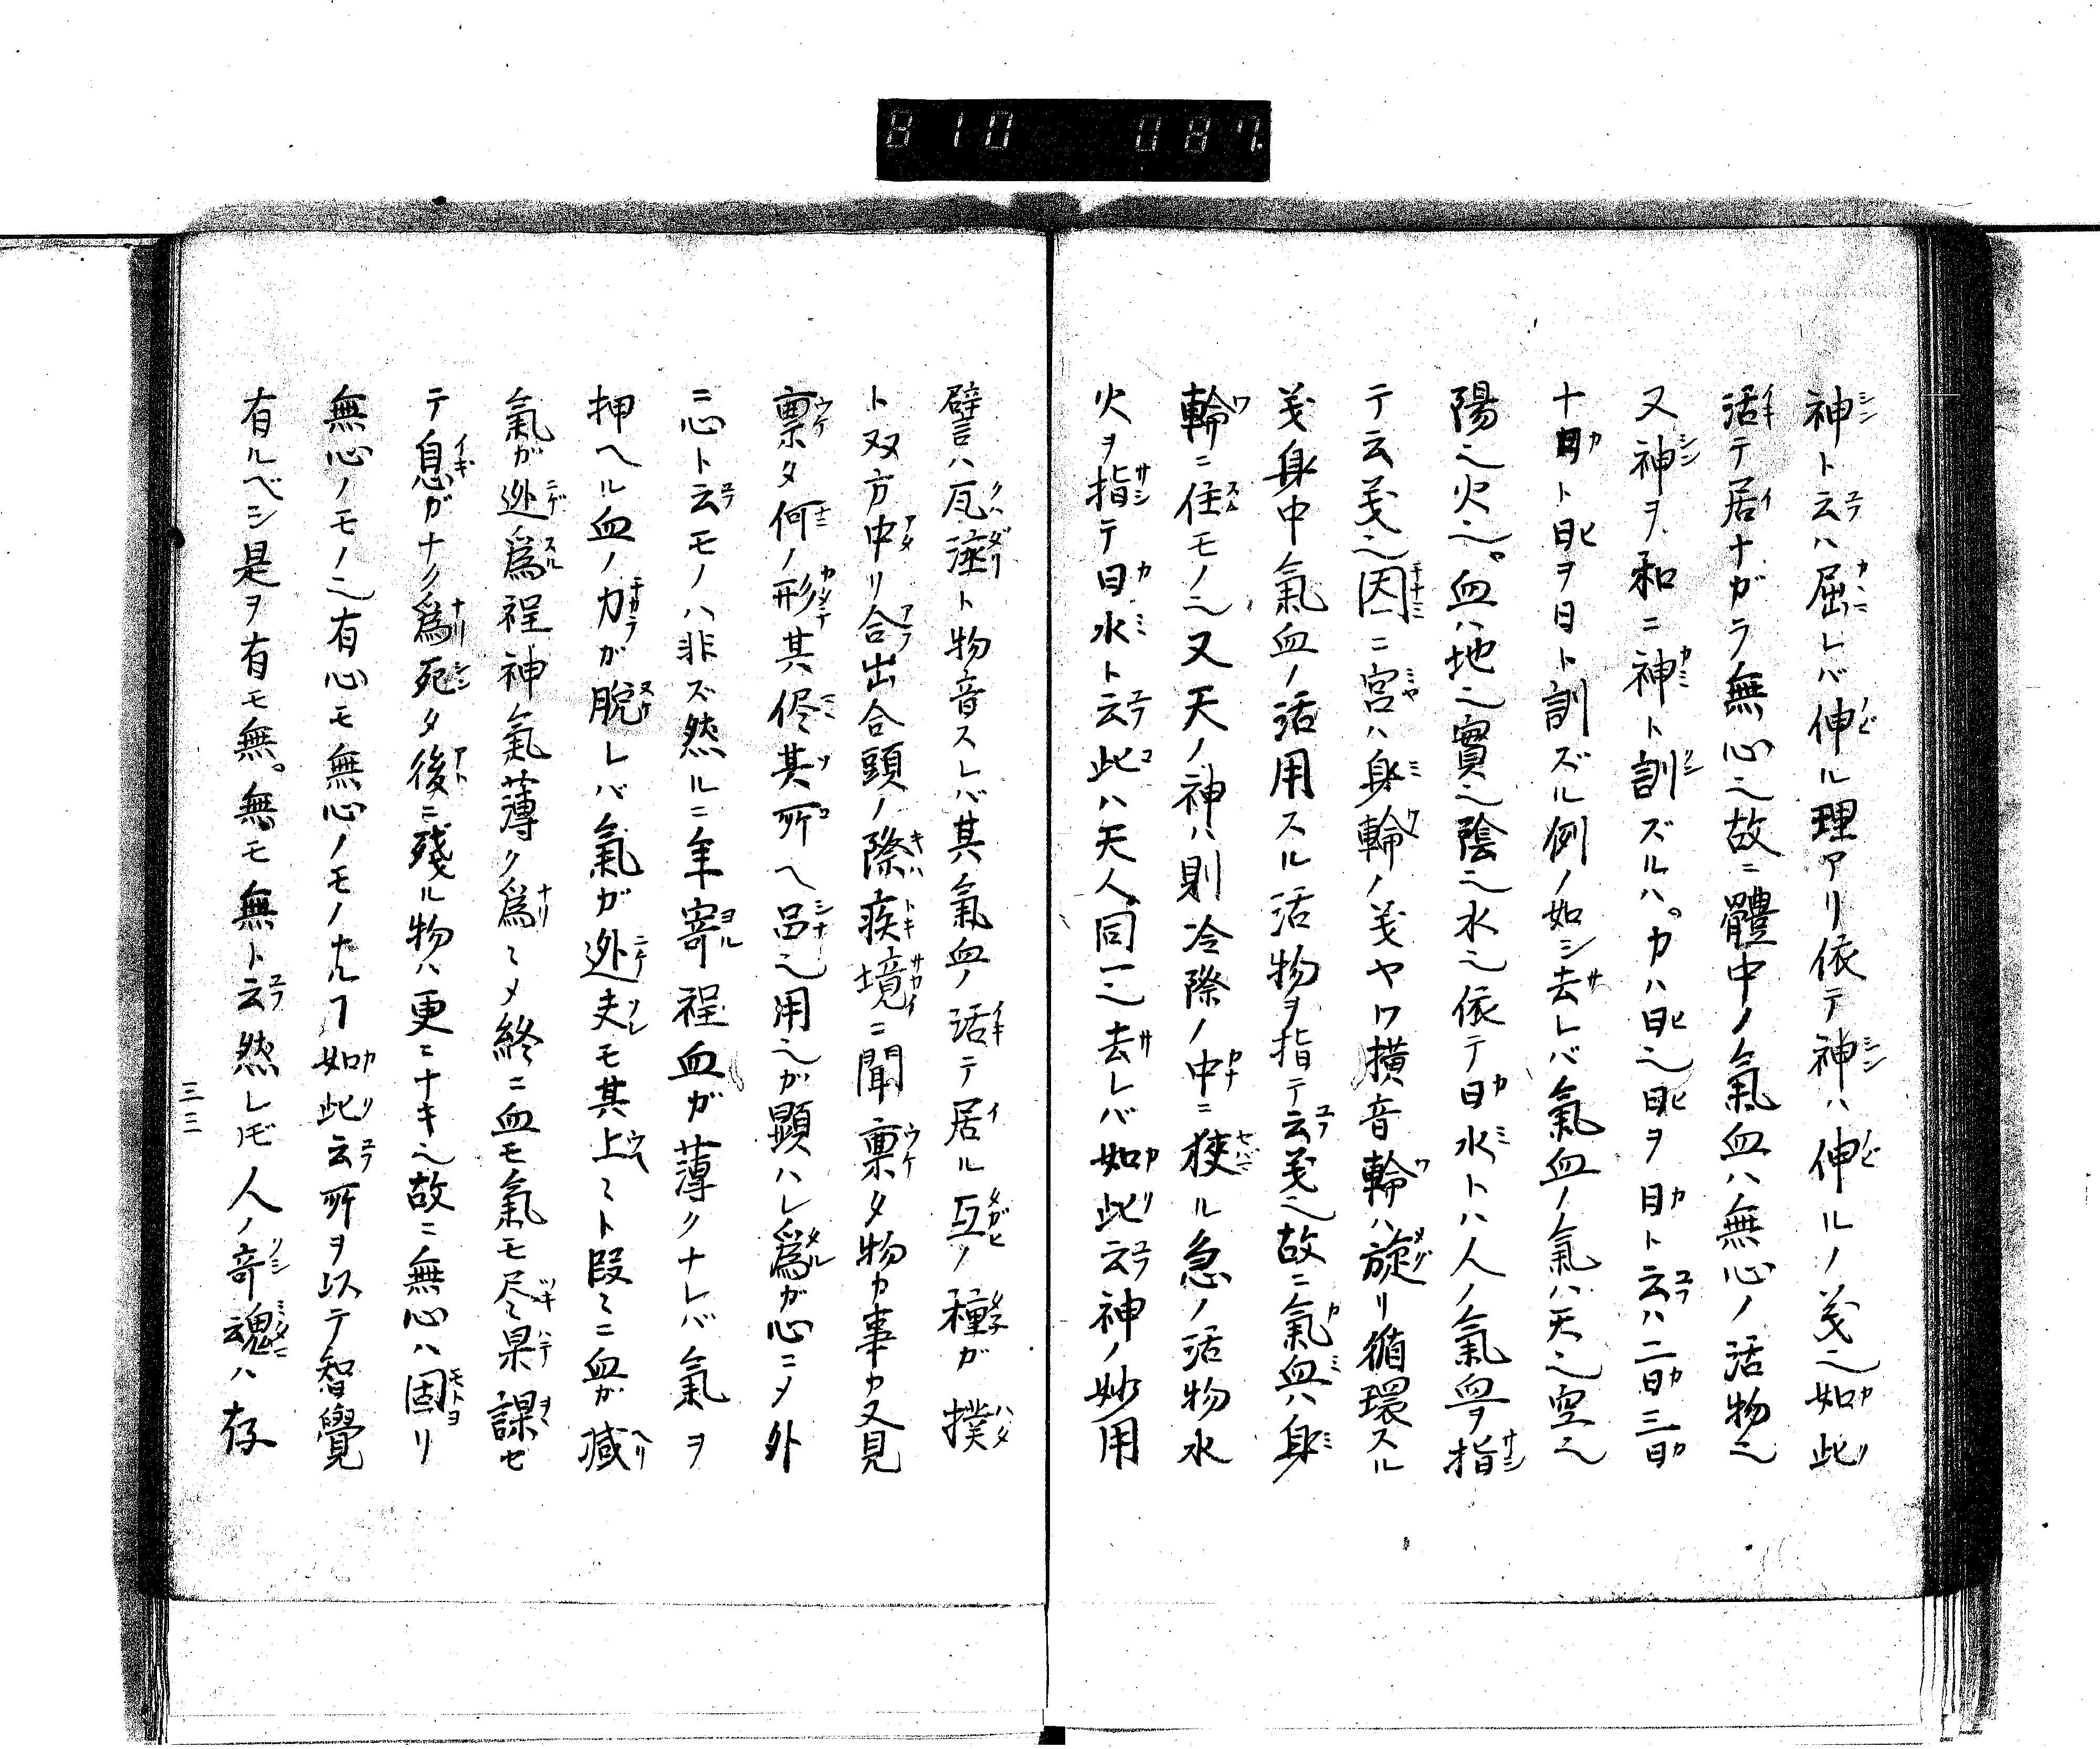 810 087.
神ト云ハ屈レバ伸ル理アリ依テ神ハ伸ルノ義也如此
活テ居ナガラ無心也故ニ體中ノ氣血ハ無心ノ活物也
又神ヲ和ニ神ト訓ズルハ。カハ日也日ヲ日ト云ハ二日三日
十日ト日ヲ日ト訓ズル例ノ如シ去レバ氣血ノ氣ハ天也空也
陽也火也。血ハ地也實也陰也水也依テ日水トハ人ノ氣血ヲ指
テ云義也因ニ宮ハ身輪ノ義ヤワ横音輪ハ旋リ循環スル
義身中氣血ノ活用スル活物ヲ指テ云義也故ニ氣血ハ身
輪ニ住モノ也又天ノ神ハ則冷際ノ中ニ狹ル急ノ活物水
火ヲ指テ日水ト云此ハ天人同一也去レバ如此云神ノ妙用
譬ハ瓦滏ト物音スレバ其氣血ノ活テ居ル互ノ種ガ撲
ト双方中リ合出合頭ノ際疾境ニ聞稟タ物カ事カ又見
稟タ何ノ形其侭其所ヘ呂也用也ガ顯ハレ爲ガ心ニメ外
ニ心ト云モノハ非ズ然ルニ年寄程血ガ薄クナレバ氣ヲ
押ヘル血ノ力ガ脱レバ氣ガ迯夫モ其上ミト段ミニ血ガ減
氣ガ迯爲程神氣薄ク爲ミメ終ニ血モ氣モ尽果課セ
テ息ガナク爲死タ後ニ殘ル物ハ更ニナキ也故ニ無心ハ固リ
無心ノモノ也有心モ無心ノモノナルヿ如此云所ヲ以テ智覺
有ルベシ是ヲ有モ無。無モ無ト云然レ𪜈人ノ竒魂ハ存
三三